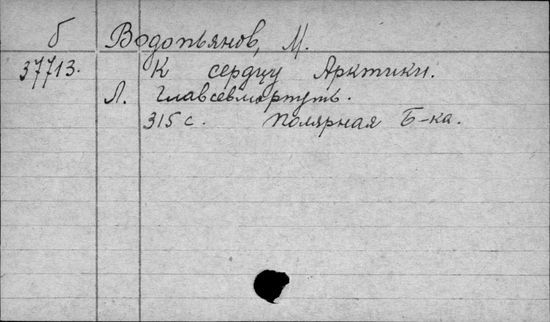 б Водопьянов, М.
37713. К сердцу Арктики.
Л. Главсевморпуть.
315 с. Полярная Б-ка.